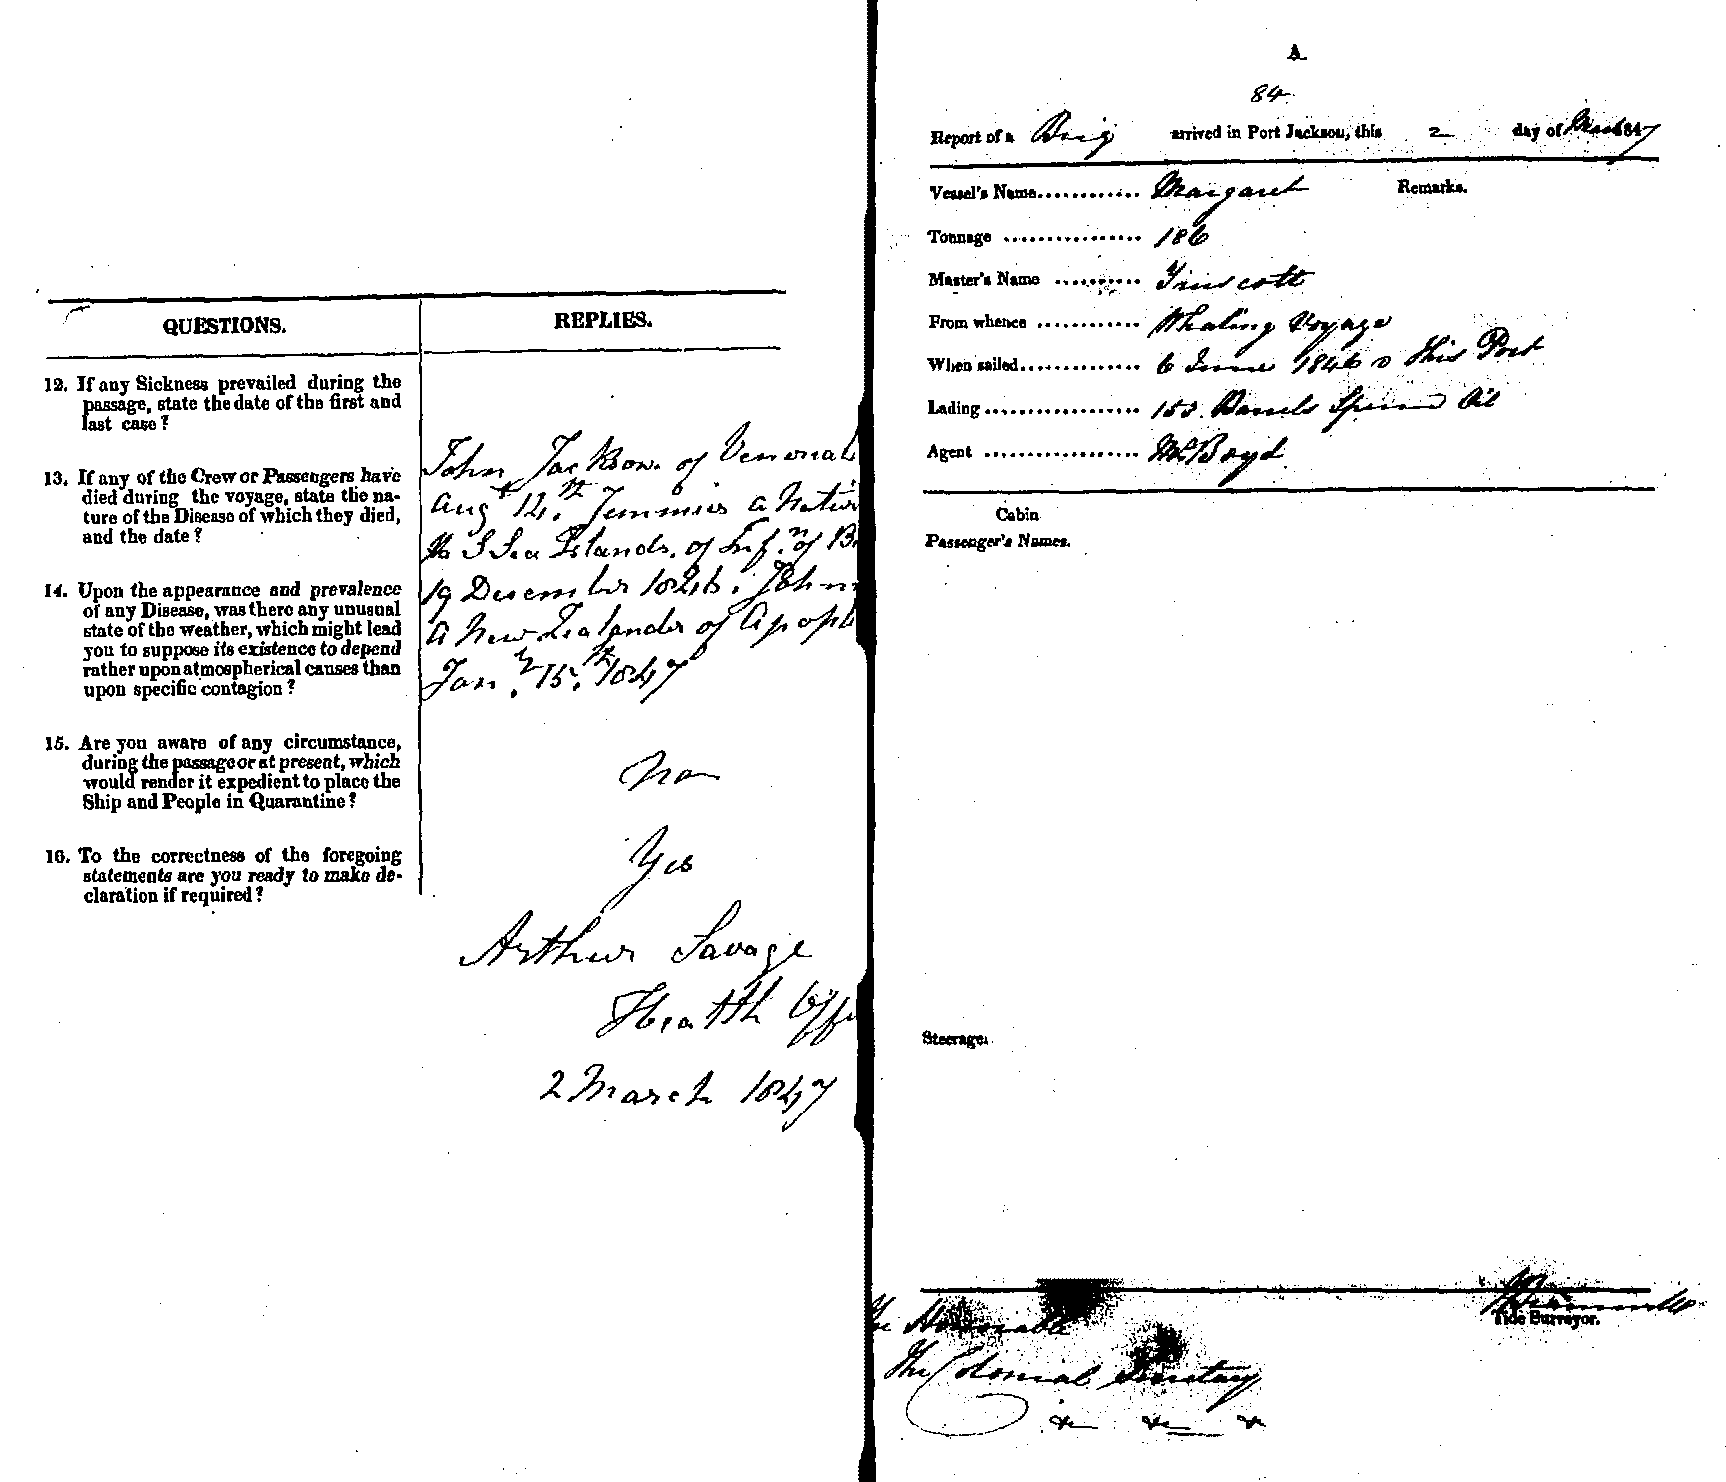 QUESTIONS.
REPLIES.
12. If any Sickness prevailed during the
passage, state the date of the first and
last case?
13. If any of the Crew or Passengers have
died during the voyage, state the na-
ture of the Disease of which they died,
and the date?
John Jackson of Venereal
Augt 12.th Jimmies a Native
S Sea Islands. of Inf.n of B
19 December 1846. John
a New Zealander of Apople
Jan.y 15.th 1847
14. Upon the appearance and prevalence
of any Disease, was there any unusual
state of the weather, which might lead
you to suppose its existence to depend
rather upon atmospherical causes than
upon specific contagion?
15. Are you aware of any circumstance,
during the passage or at present, which
would render it expedient to place the
Ship and People in Quarantine?
No
16. To the correctness of the foregoing
statements are you ready to make de-
claration if required?
Yes
Arthur Savage
Health Offi
2 March 1847
A.
84
Report of a Brig arrived in Port Jackson, this 2 day of March 1847
Vessel's Name............ Margaret Remarks.
Tonnage ................ 186
Master's Name .......... Trinscott
From whence ............ Whaling Voyage
When sailed.............. 6 June 1846 This Port
Lading .................. 153 Barrels Sperm Oil
Agent .................. Mr Boyd
Cabin
Passenger's Names.
Steerage.
Tide Surveyor.
The Honorable
The Colonial Secretary
&c &c &c